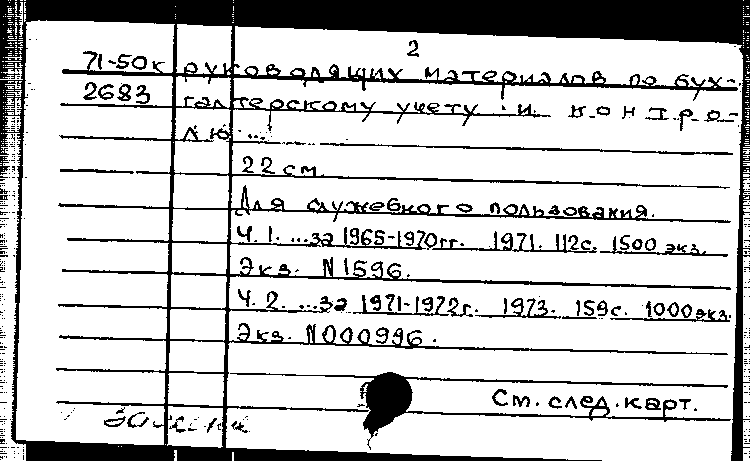 2
71-50к руководящих материалов по бух-
2683 галтерскому учету и контро-
лю ...
22 см.
Для служебного пользования.
Ч. 1. ...за 1965-1970гг. 1971. 112с. 1500 экз.
Экз. N1596.
Ч. 2. ...за 1971-1972г. 1973. 159с. 1000экз.
Экз. N000996.
См. след. карт.